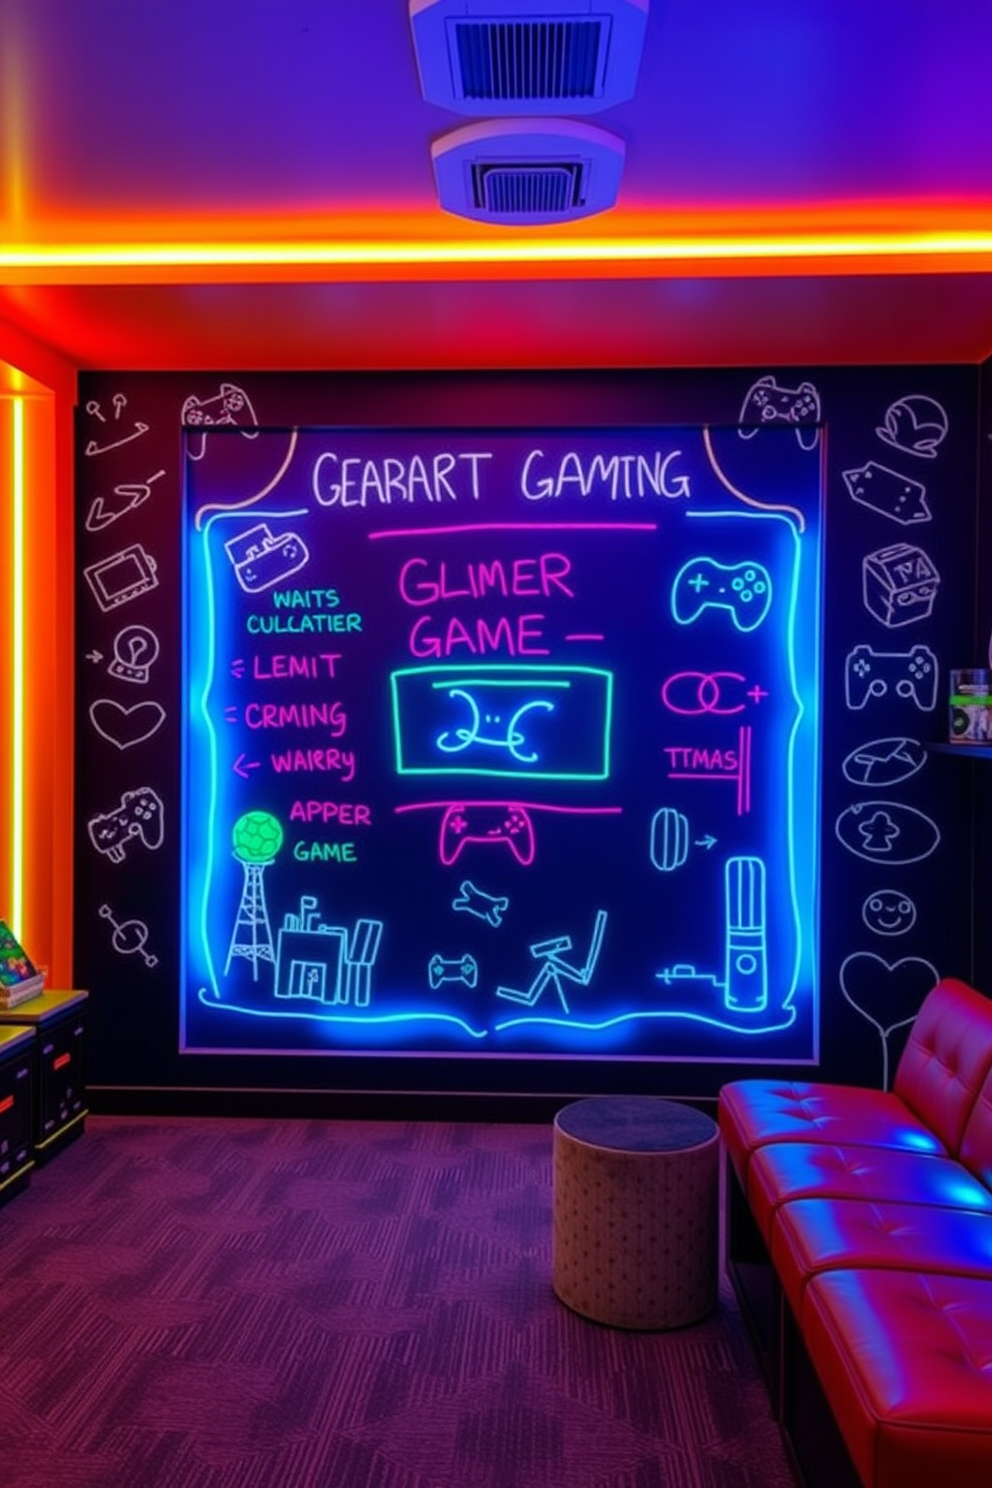 GEARART GAMING
GLIMER
GAME —
WAITS
CULCATIER
LEMIT
CRMING
WAIRRY
APPER
GAME
TTMAS